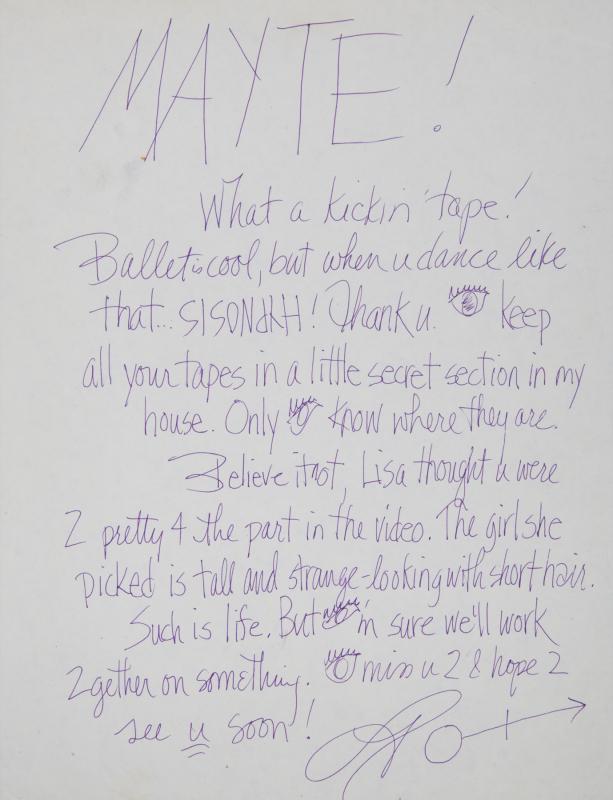 MAYTE!
What a kickin' tape!
Ballet is cool, but when u dance like
that... SISONdHH! Thank u. 👁 keep
all your tapes in a little secret section in my
house. Only 👁 know where they are.
Believe it not, Lisa thought u were
2 pretty 4 the part in the video. The girl she
picked is tall and strange-looking with short hair.
Such is life. But 👁'm sure we'll work
2gether on something. 👁 miss u 2 & hope 2
see u soon!